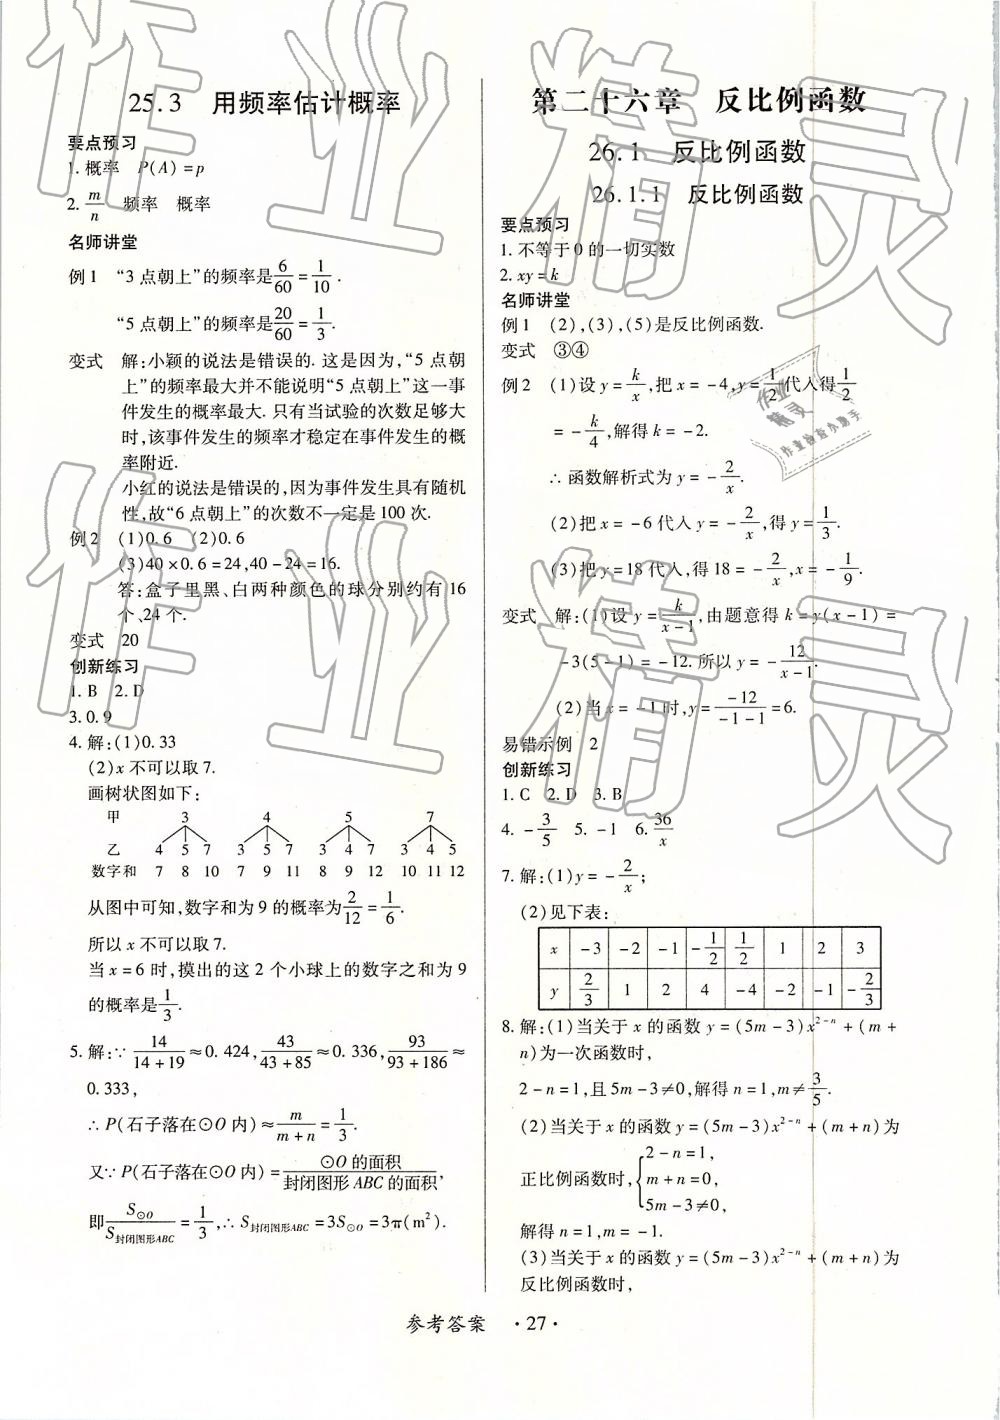 25.3 用频率估计概率
要点预习
1.概率 P(A)=p
2.m/n 频率 概率
名师讲堂
例1 “3点朝上”的频率是6/60=1/10.
“5点朝上”的频率是20/60=1/3.
变式 解:小颖的说法是错误的.这是因为,“5点朝
上”的频率最大并不能说明“5点朝上”这一事
件发生的概率最大.只有当试验的次数足够大
时,该事件发生的频率才稳定在事件发生的概
率附近.
小红的说法是错误的,因为事件发生具有随机
性,故“6点朝上”的次数不一定是100次.
例2 (1)0.6 (2)0.6
(3)40×0.6=24,40-24=16.
答:盒子里黑、白两种颜色的球分别约有16
个、24个.
变式 20
创新练习
1.B 2.D
3.0.9
4.解:(1)0.33
(2)x不可以取7.
画树状图如下:
甲 3 4 5 7
乙 4 5 7 3 5 7 3 4 7 3 4 5
数字和 7 8 10 7 9 11 8 9 12 10 11 12
从图中可知,数字和为9的概率为2/12=1/6.
所以x不可以取7.
当x=6时,摸出的这2个小球上的数字之和为9
的概率是1/3.
5.解:∵14/(14+19)≈0.424,43/(43+85)≈0.336,93/(93+186)≈
0.333,
∴P(石子落在⊙O内)≈m/(m+n)=1/3.
又∵P(石子落在⊙O内)=⊙O的面积/封闭图形ABC的面积,
即S⊙O/S封闭图形ABC=1/3,∴S封闭图形ABC=3S⊙O=3π(m²).
第二十六章 反比例函数
26.1 反比例函数
26.1.1 反比例函数
要点预习
1.不等于0的一切实数
2.xy=k
名师讲堂
例1 (2),(3),(5)是反比例函数.
变式 ③④
例2 (1)设y=k/x,把x=-4,y=1/2代入得1/2
=-k/4,解得k=-2.
∴函数解析式为y=-2/x.
(2)把x=-6代入y=-2/x,得y=1/3.
(3)把y=18代入,得18=-2/x,x=-1/9.
变式 解:(1)设y=k/(x-1),由题意得k=y(x-1)=
-3(5-1)=-12.所以y=-12/(x-1).
(2)当x=-1时,y=-12/(-1-1)=6.
易错示例 2
创新练习
1.C 2.D 3.B
4.-3/5 5.-1 6.36/x
7.解:(1)y=-2/x;
(2)见下表:
x -3 -2 -1 -1/2 1/2 1 2 3
y 2/3 1 2 4 -4 -2 -1 -2/3
8.解:(1)当关于x的函数y=(5m-3)x²⁻ⁿ+(m+
n)为一次函数时,
2-n=1,且5m-3≠0,解得n=1,m≠3/5.
(2)当关于x的函数y=(5m-3)x²⁻ⁿ+(m+n)为
正比例函数时,{2-n=1,
m+n=0,
5m-3≠0,
解得n=1,m=-1.
(3)当关于x的函数y=(5m-3)x²⁻ⁿ+(m+n)为
反比例函数时,
参考答案 ·27·
作业精灵
作业精灵
作业
精灵
作业检查小助手